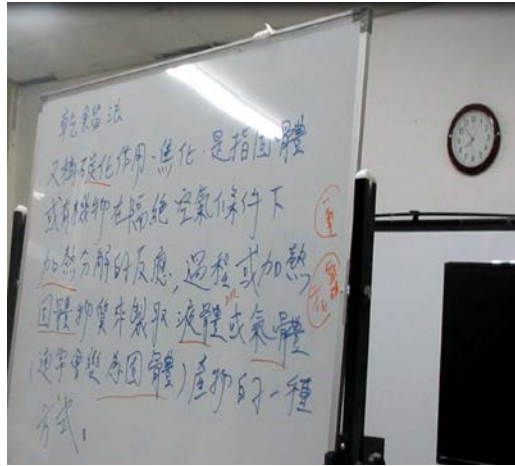 乾餾法
又稱碳化作用、焦化,是指固體
或有機物在隔絕空氣條件下
加熱分解的反應過程,或加熱
固體物質來製取液體或氣體
(通常會變為固體)產物的一種
方式。